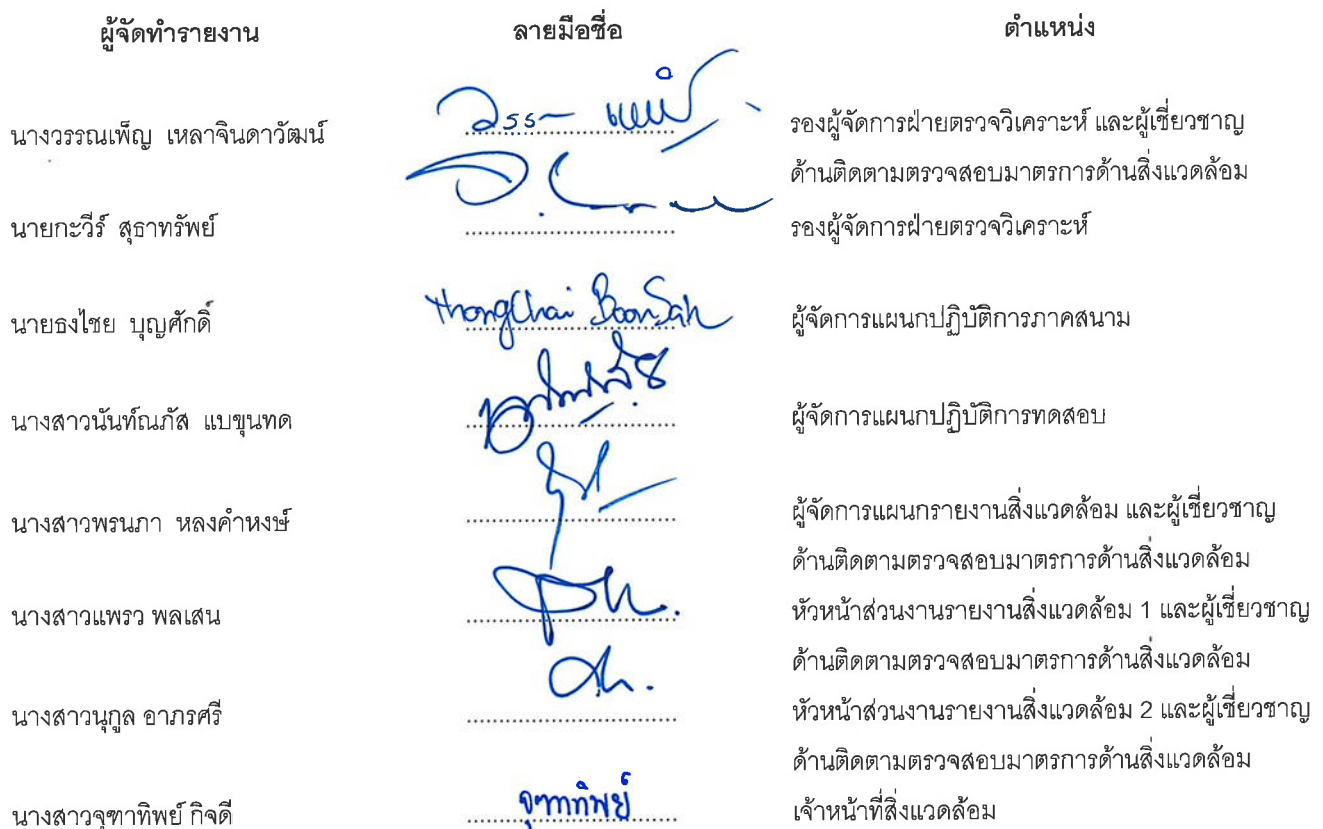 ผู้จัดทำรายงาน ลายมือชื่อ ตำแหน่ง
นางวรรณเพ็ญ เหลาจินดาวัฒน์ รองผู้จัดการฝ่ายตรวจวิเคราะห์ และผู้เชี่ยวชาญ
ด้านติดตามตรวจสอบมาตรการด้านสิ่งแวดล้อม
นายกะวีร์ สุธาทรัพย์ รองผู้จัดการฝ่ายตรวจวิเคราะห์
นายธงไชย บุญศักดิ์ ThongChai BoonSak ผู้จัดการแผนกปฏิบัติการภาคสนาม
นางสาวนันท์ณภัส แบขุนทด ผู้จัดการแผนกปฏิบัติการทดสอบ
นางสาวพรนภา หลงคำหงษ์ ผู้จัดการแผนกรายงานสิ่งแวดล้อม และผู้เชี่ยวชาญ
ด้านติดตามตรวจสอบมาตรการด้านสิ่งแวดล้อม
นางสาวแพรว พลเสน หัวหน้าส่วนงานรายงานสิ่งแวดล้อม 1 และผู้เชี่ยวชาญ
ด้านติดตามตรวจสอบมาตรการด้านสิ่งแวดล้อม
นางสาวนุกูล อาภรศรี หัวหน้าส่วนงานรายงานสิ่งแวดล้อม 2 และผู้เชี่ยวชาญ
ด้านติดตามตรวจสอบมาตรการด้านสิ่งแวดล้อม
นางสาวจุฑาทิพย์ กิจดี จุฑาทิพย์ เจ้าหน้าที่สิ่งแวดล้อม